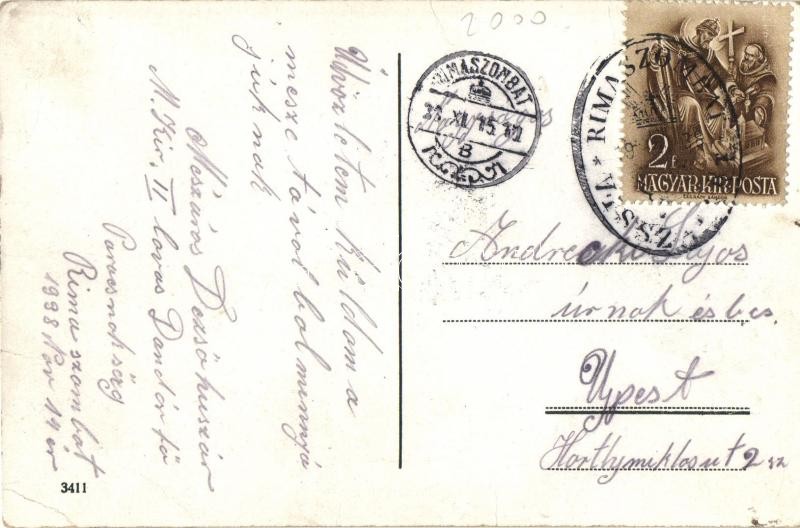 2000
Üdvözletem küldöm a
messze távolbol minnyá
juknak
Mészáros Dezső huszár
M. Kir. II lovas Dandár fő
Parancsnokság
Rima szombat
1938 Nov 14 én
3411
RIMASZOMBAT
38. XI. 15. 12
B
RIMASZOMBAT
VISSZA
2 f
MAGYAR·KIR·POSTA
Lajos
úrnak és bcs.
Ujpest
Horthymiklos ut 2 sz